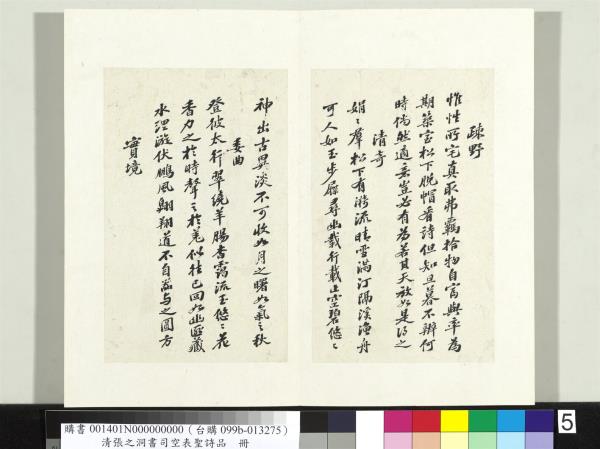 疎野
惟性所宅真取弗羈拾物自富與率為
期築室松下脫帽看詩但知旦暮不辨何
時倘然適意豈必有為若其天放如是得之
清奇
娟〻羣松下有漪流晴雪滿汀隔溪漁舟
可人如玉步屧尋幽載行載止空碧悠〻
神出古異淡不可收如月之曙如氣之秋
委曲
登彼太行翠繞羊腸杳靄流玉悠〻花
香力之於時聲之於羌似往已回如幽匪藏
水理漩伏鵬風翱翔道不自器與之圓方
實境
購書 001401N000000000（台購 099b-013275）
清張之洞書司空表聖詩品 冊
5